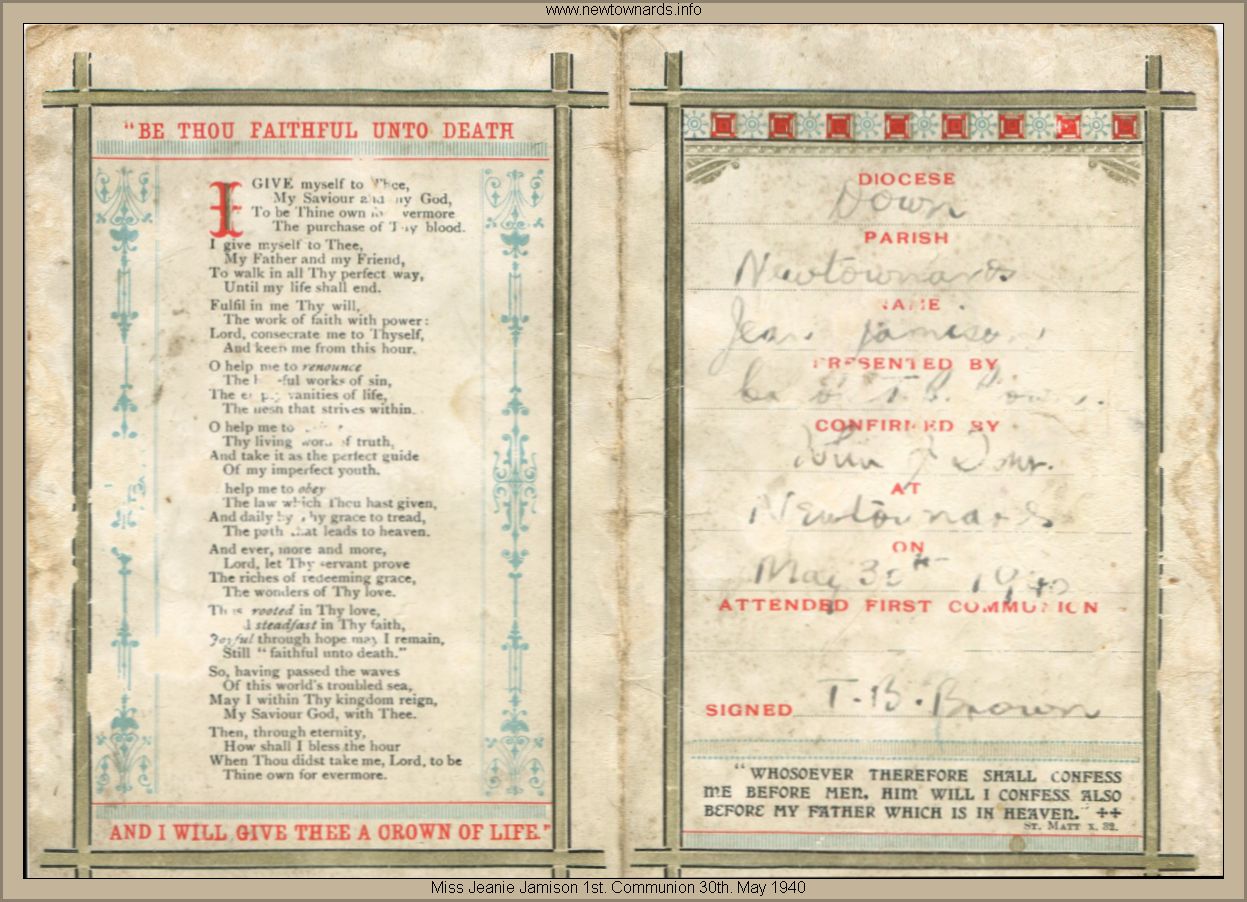 www.newtownards.info
"BE THOU FAITHFUL UNTO DEATH
I GIVE myself to Thee,
My Saviour and my God,
To be Thine own vermore
The purchase of Thy blood.
I give myself to Thee,
My Father and my Friend,
To walk in all Thy perfect way,
Until my life shall end.
Fulfil in me Thy will,
The work of faith with power:
Lord, consecrate me to Thyself,
And keep me from this hour.
O help me to renounce
The ful works of sin,
The vanities of life,
The flesh that strives within.
O help me to
Thy living word of truth,
And take it as the perfect guide
Of my imperfect youth.
help me to obey
The law which Thou hast given,
And daily by Thy grace to tread,
The path that leads to heaven.
And ever, more and more,
Lord, let Thy servant prove
The riches of redeeming grace,
The wonders of Thy love.
Thus rooted in Thy love,
steadfast in Thy faith,
Joyful through hope may I remain,
Still "faithful unto death."
So, having passed the waves
Of this world's troubled sea,
May I within Thy kingdom reign,
My Saviour God, with Thee.
Then, through eternity,
How shall I bless the hour
When Thou didst take me, Lord, to be
Thine own for evermore.
AND I WILL GIVE THEE A CROWN OF LIFE."
DIOCESE
Down
PARISH
Newtownards
NAME
Jean Jamison
PRESENTED BY
T. B.
CONFIRMED BY
John Down.
AT
Newtownards
ON
May 30th 1940
ATTENDED FIRST COMMUNION
SIGNED T. B. Brown
"WHOSOEVER THEREFORE SHALL CONFESS
ME BEFORE MEN, HIM WILL I CONFESS ALSO
BEFORE MY FATHER WHICH IS IN HEAVEN."
ST. MATT X. 32.
Miss Jeanie Jamison 1st. Communion 30th. May 1940